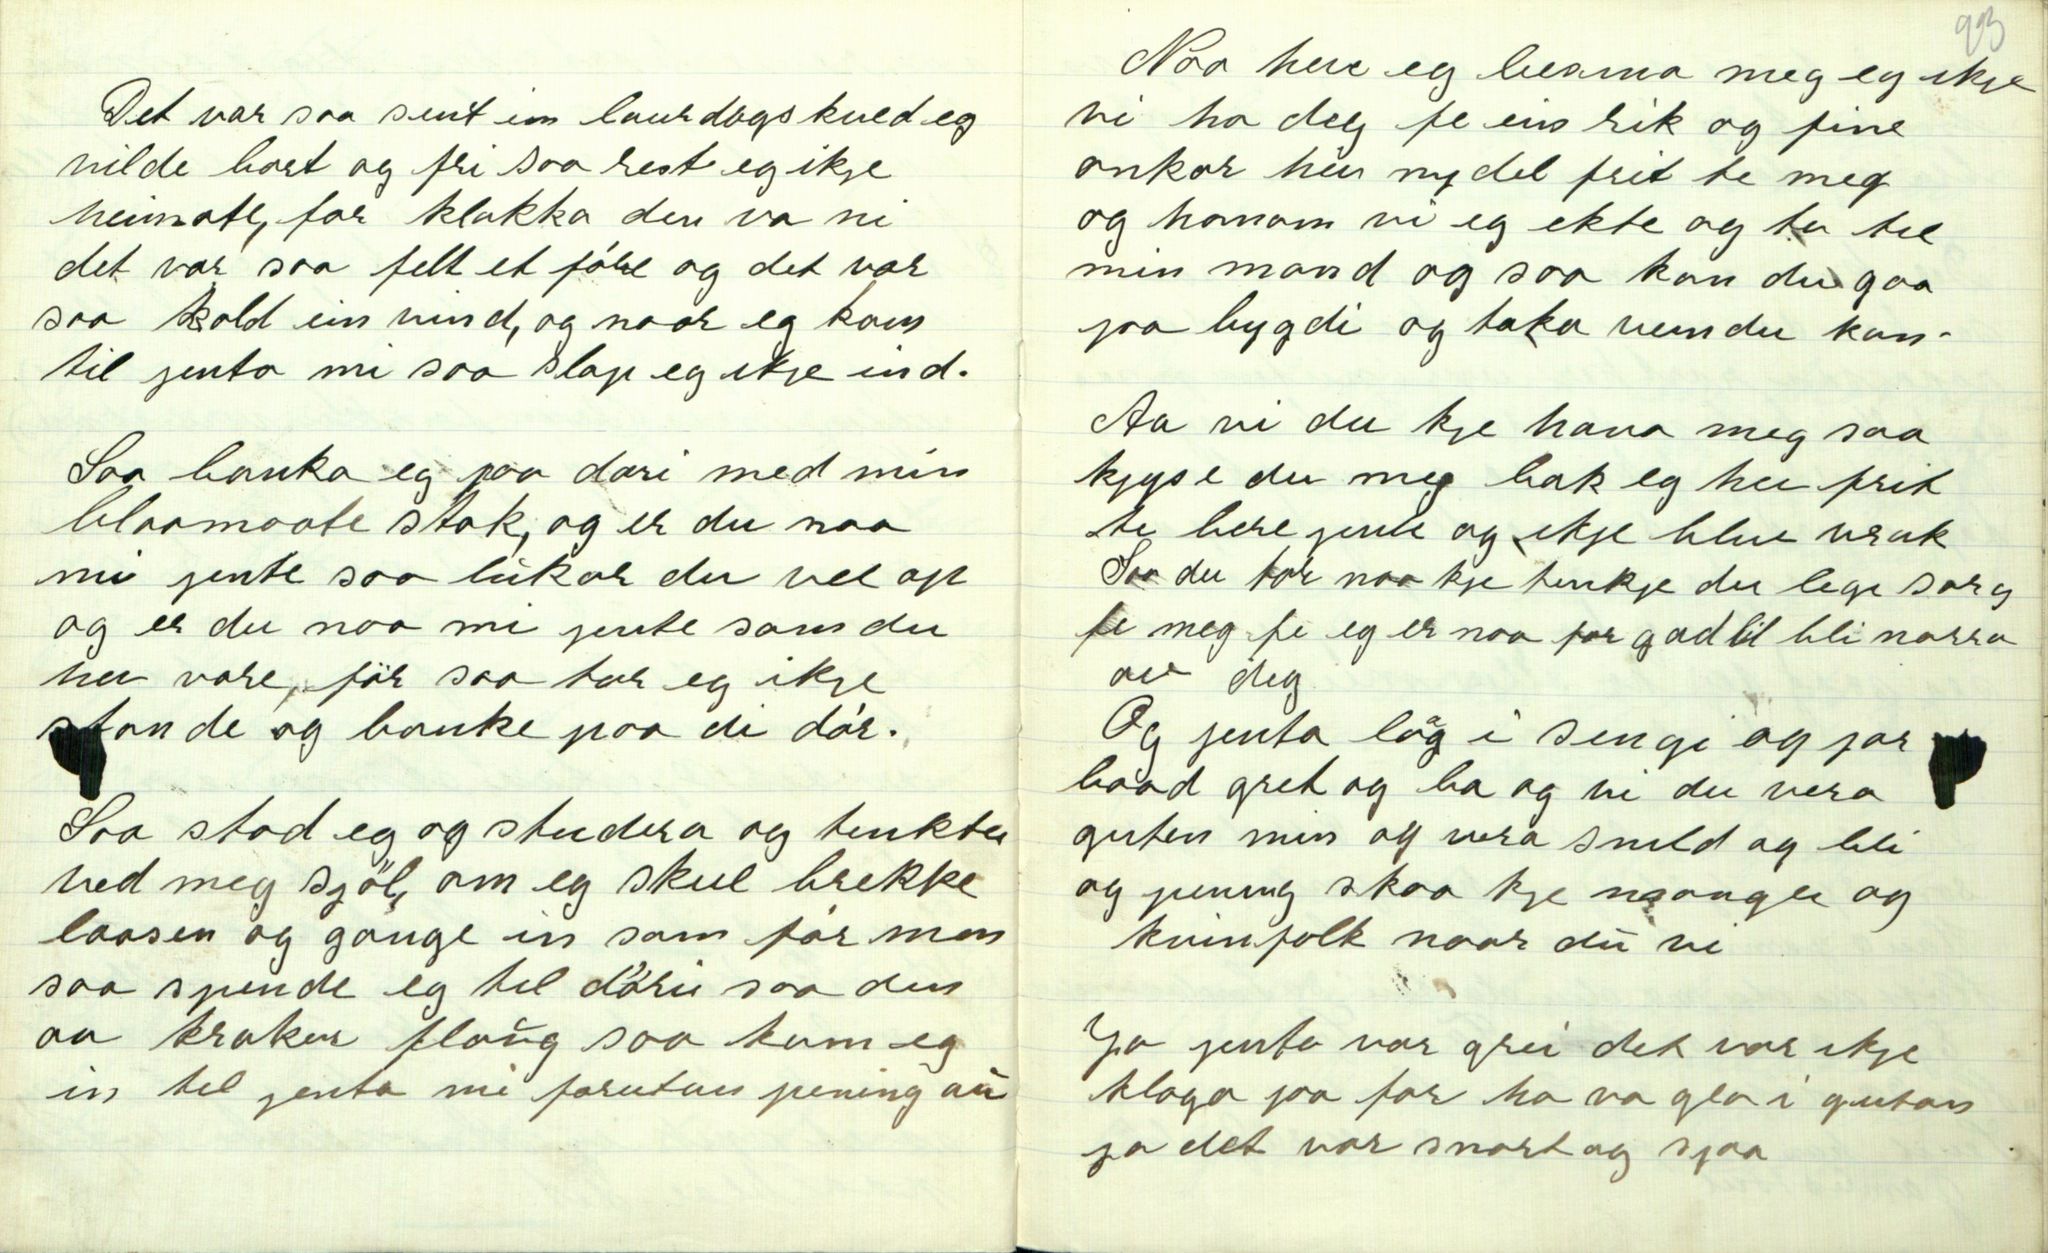 Det var saa sent ein laurdags kveld eg
vilde bort og fri saa reste eg ikje
heimate, for klokka den va ni
det var saa felt et före og det var
saa kold ein vind, og naar eg kom
til jenta mi saa slap eg ikje ind.

Saa banka eg paa dori med min
blaamaate stok, og er du naa
mi jente saa lukar du vel op
og er du naa mi jente som du
hev vore, för saa tar eg ikje
stande og banke paa di dör.

Saa stod eg og studera og tenkte
ved meg sjöl, om eg skul brekke
laasen og gange in som för men
saa spende eg til döri saa den
aa kraken flaug saa kom eg
in til jenta mi forutan pening au

93
Naa heve eg besma meg eg ikje
vi ha deg fe ein rik og fine
onkar hev nydel frit te meg
og honom vi eg ekte og ta tel
min mand og saa kan du gaa
paa bygdi og taka vem du kan.

Aa vi du kje hava meg saa
kjyse du meg bak eg hev frit
te bere jente og ikje blive vrak
Saa du tör naa kje tenkje du lege sorg
fe meg fe eg er naa for god til bli narra
av deg
Og jenta låg i sengi og for
baad gret og ba og vi du vera
guten min og vera snild og bli
og pening skaa kje mangle og
kvinfolk naar du vi

Ja jenta var grei det var ikje
klaga paa for ho va gla i gutan
ja det var snart og sjaa